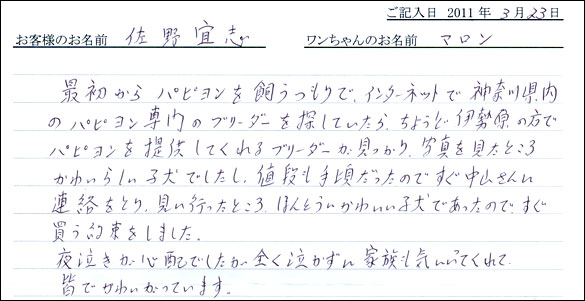 ご記入日 2011年3月23日
お客様のお名前 佐野宜志 ワンちゃんのお名前 マロン
最初からパピヨンを飼うつもりで、インターネットで神奈川県内
のパピヨン専門のブリーダーを探していたら、ちょうど伊勢原の方で
パピヨンを提供してくれるブリーダーが見つかり、写真を見たところ
かわいらしい子犬でしたし、値段も手頃だったのですぐ中山さんに
連絡をとり、見い行ったところ、ほんとうにかわいい子犬であったので、すぐ
買う約束をしました。
夜泣きが心配でしたが全く泣かずに家族も気にいってくれて
皆でかわいがっています。